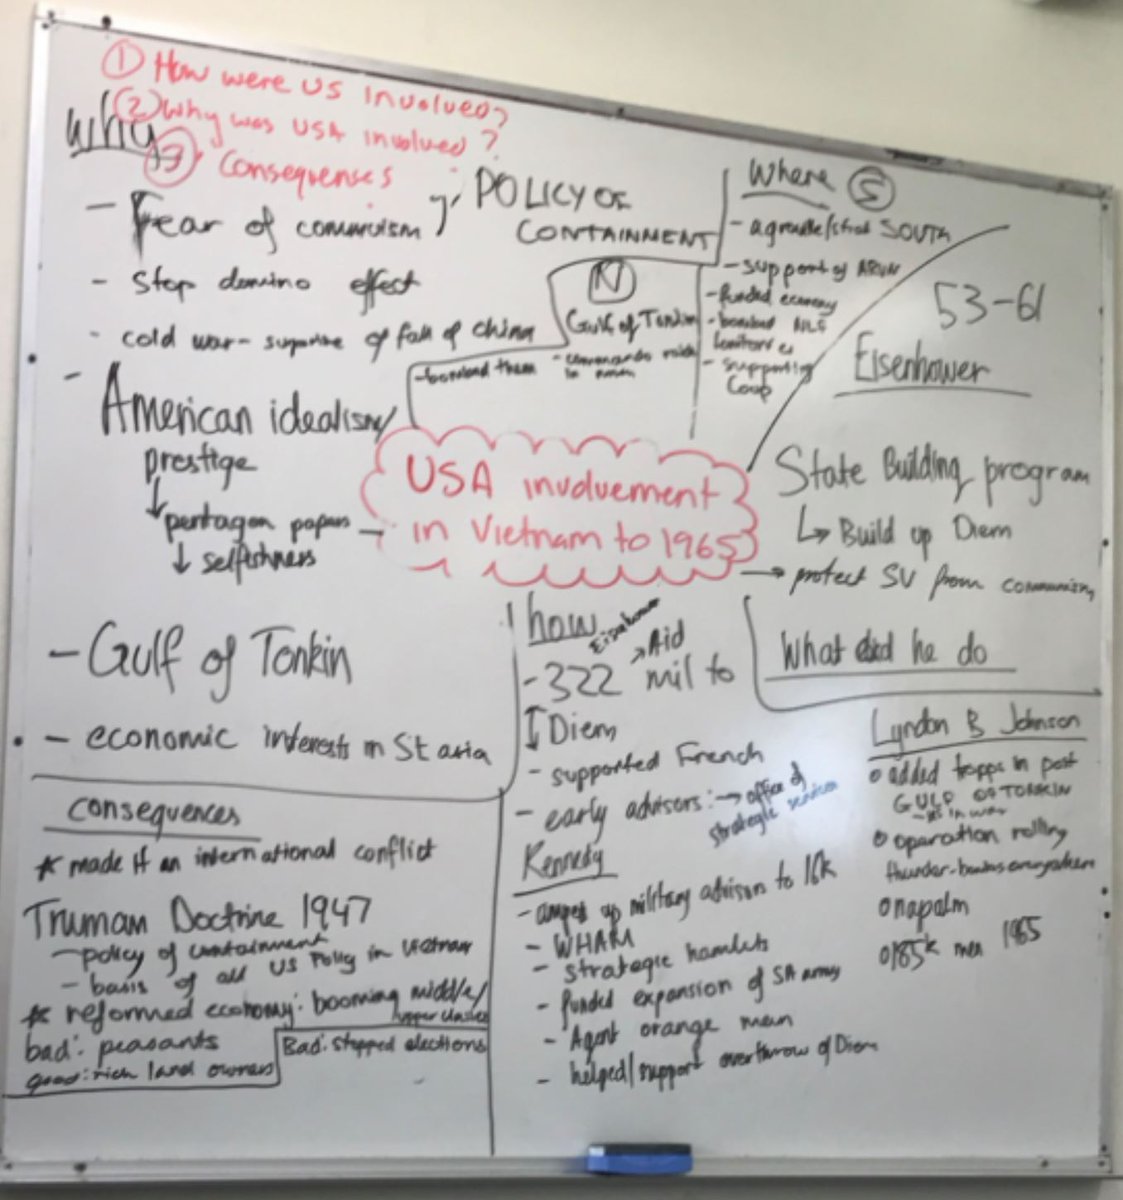 ① How were US involved?
② Why was USA involved?
③ Consequenses
Why
- Fear of communism } POLICY OF
CONTAINMENT
- Stop domino effect
- cold war - suprise of fall of China
- American idealism/
prestige
↓ pentagon papers -
↓ selfishness
- Gulf of Tonkin
- economic interests in St asia
Where Ⓢ
- SOUTH
- support of ARVN
- funded economy
- bombed
- supporting
Coup
Ⓝ
Gulf of Tonkin
- commandos
- bombed them
53-61
Eisenhower
State Building program
↳ Build up Diem
→ protect SV from communism
What did he do
USA involvement
in Vietnam to 1965
how
Eisenhower
- 322 mil to
→ Aid
Diem
- supported French
- early advisors: → office of
strategic services
Kennedy
- amped up military advisors to 16k
- WHAM
- strategic hamlets
- funded expansion of SA army
- Agent orange
- helped/support overthrow of Diem
Lyndon B Johnson
o added troops in post
GULF OF TONKIN
- US in war
o operation rolling
thunder - bombs
o napalm
o 185k men 1965
consequences
* made it an international conflict
Truman Doctrine 1947
- policy of containment
- basis of all US policy in vietnam
* reformed economy: booming middle/
upper classes
bad: peasants
good: rich land owners
Bad: stopped elections